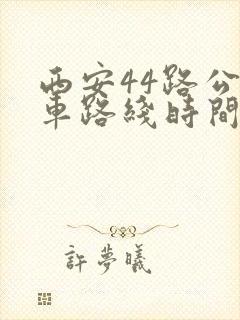 西安44路公
車路綫時間
許夢曦